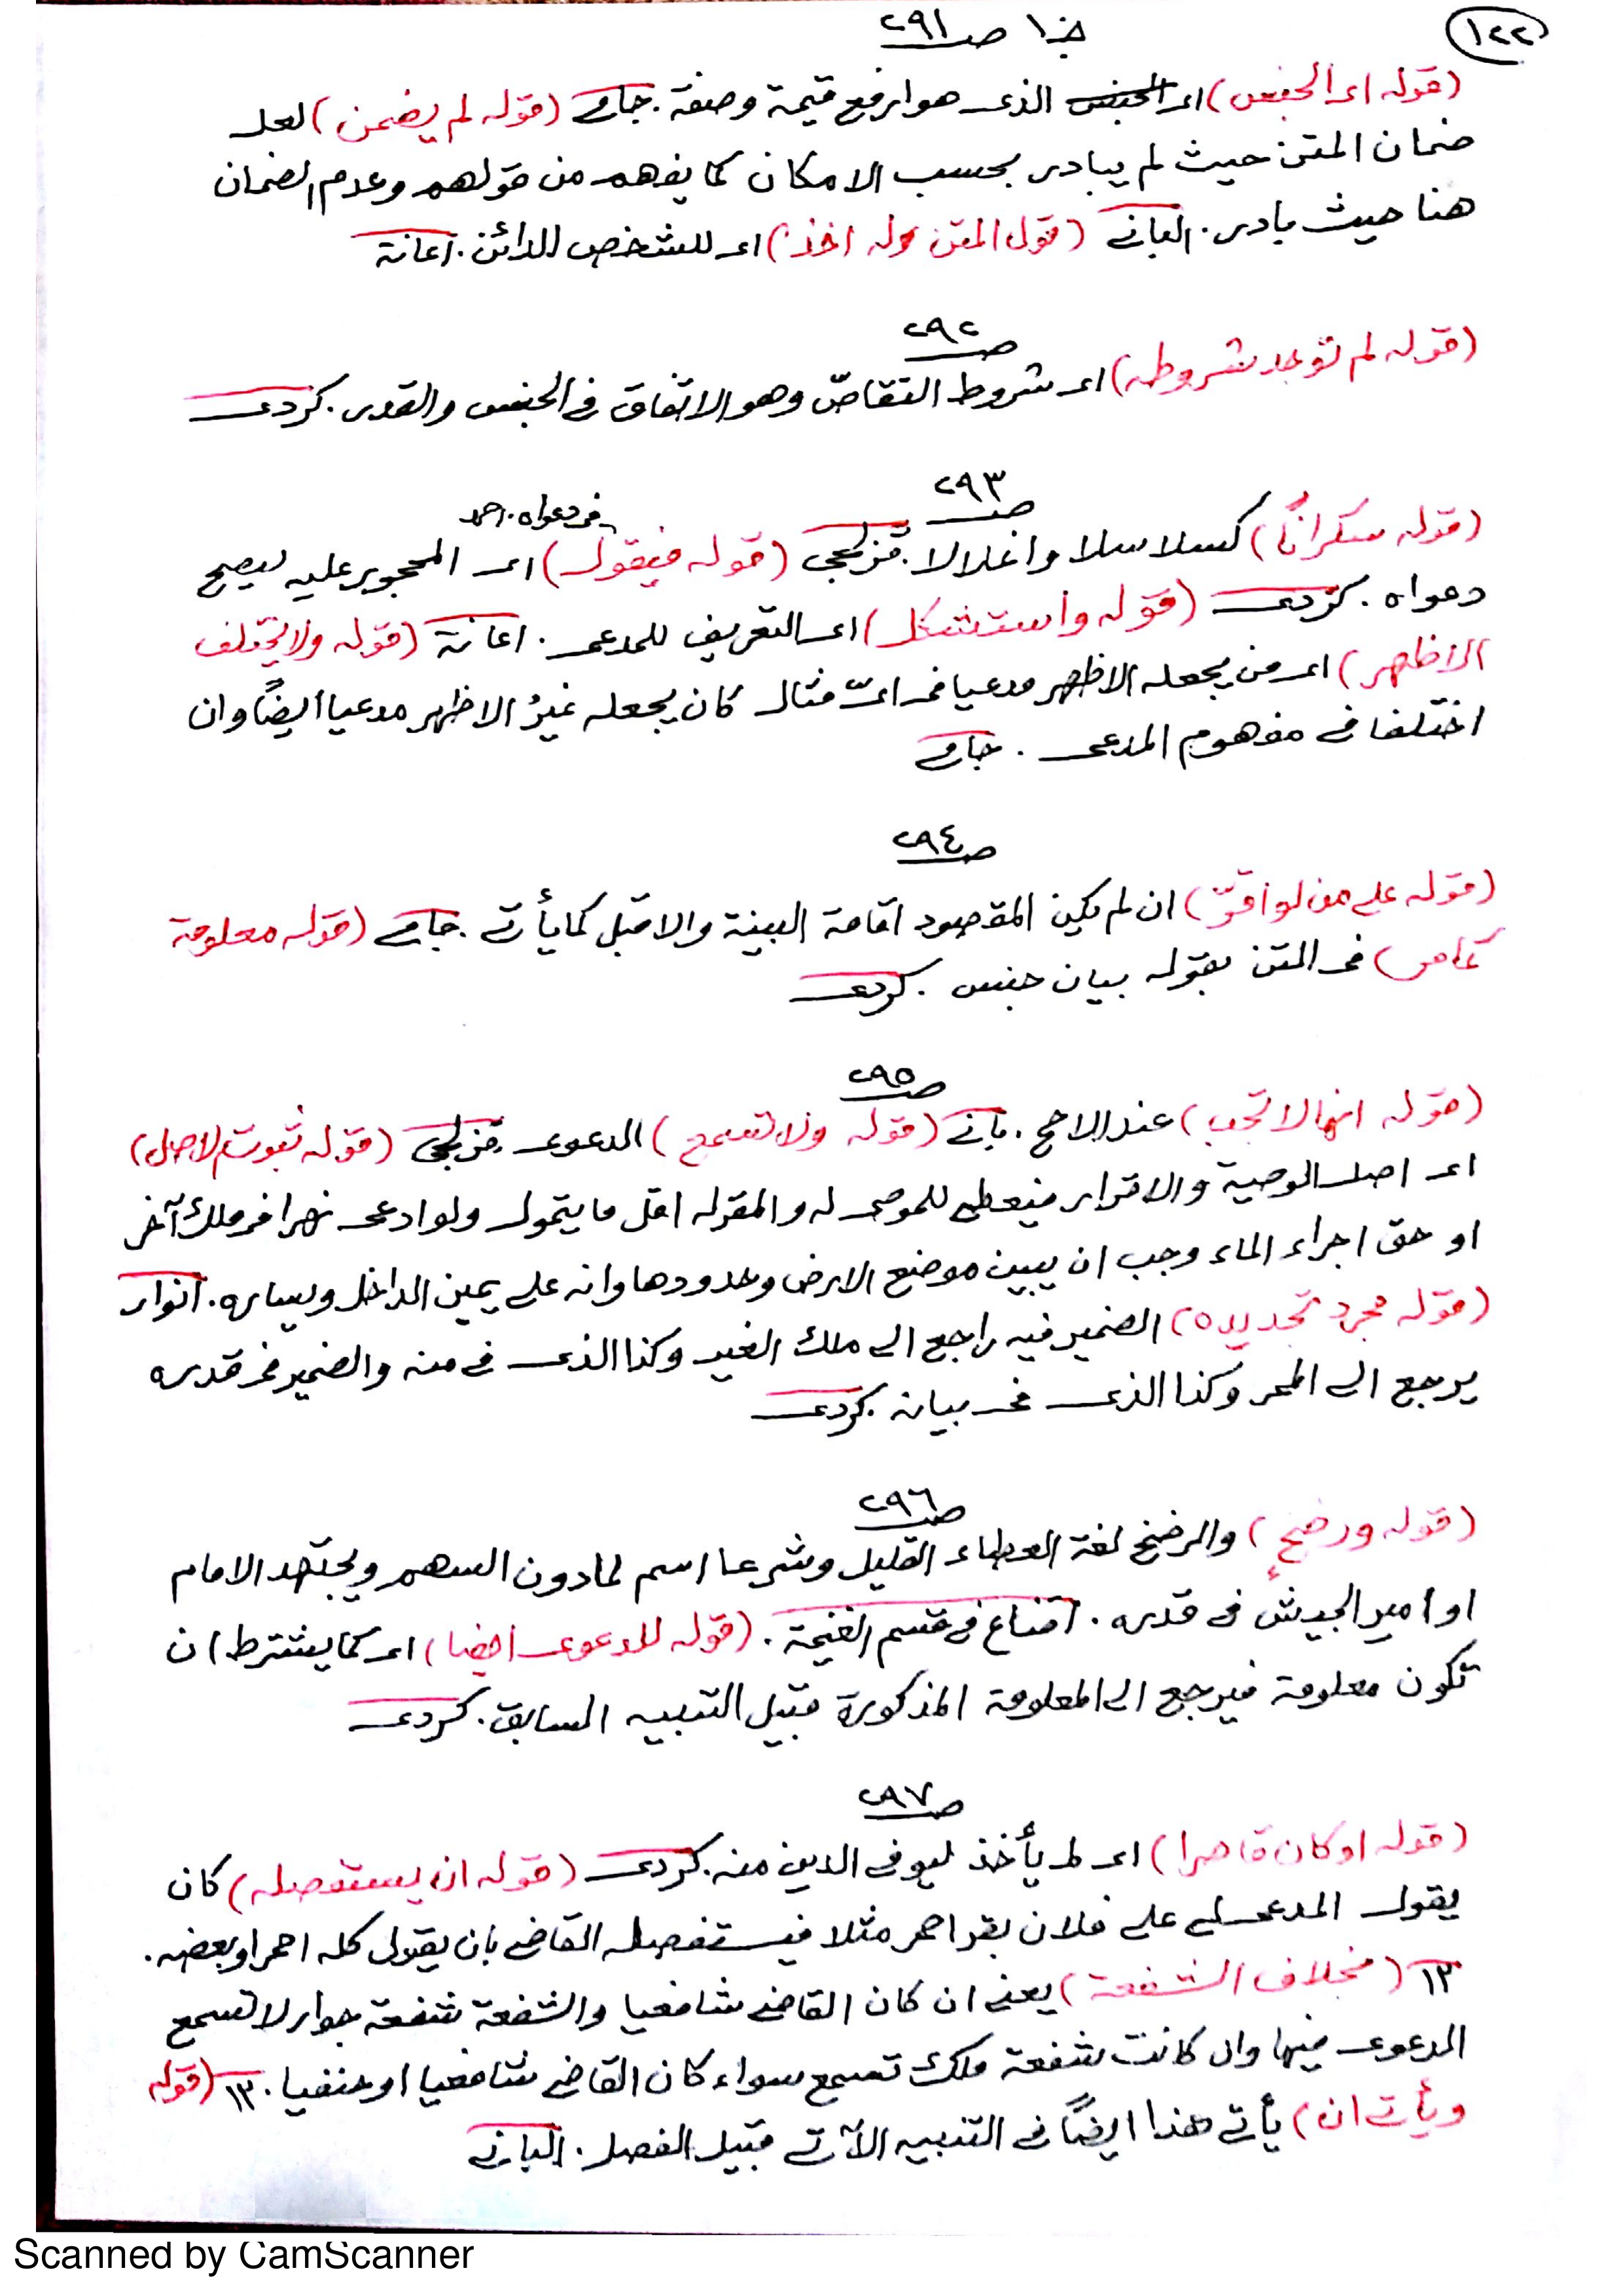 ١٢٢
جـ١٠ صـ ٢٩١
(قوله اى الجنس) اى الجنس الذى هو ارفع قيمة وصفة. جامى (قوله لم يضمن) لعل
ضمان المتن حيث لم يبادر بحسب الامكان كما يفهم من قولهم وعدم الضمان
هنا حيث بادر. البانى (قول المتن وله اخذ) اى للشخص الدائن. اعانة
صـ ٢٩٢
(قوله لم توجد شروطه) اى شروط التقاصّ وهو الاتفاق فى الجنس والقدر. كردى
صـ ٢٩٣
فى دعواه. احمد
(قوله سكرانًا) كسلاسلا واغلالا. قزلجى (قوله فيقول) اى المحجور عليه ليصح
دعواه. كردى (قوله واستشكل) اى التعريف للمدعى. اعانة (قوله ولا يختلف
الاظهر) اى من يجعله الاظهر مدعيا فى اىّ مثال كان يجعله غيرُ الاظهر مدعيا ايضًا وان
اختلفا فى مفهوم المدعى. جامى
صـ ٢٩٤
(قوله على من لو اقرّ) ان لم يكن المقصود اقامة البينة والا قبل كما يأتى. جامى (قوله معلومة
كما مر) فى المتن بقوله بيان جنس. كردى
صـ ٢٩٥
(قوله انها لا تجب) عند الاصح. بانى (قوله ولا تسمع) الدعوى. قزلجى (قوله ثبوت الاصل)
اى اصل الوصية والاقرار فيعطى للموصى له والمقر له اقل ما يتمول ولو ادعى نهرا فى ملك آخر
او حق اجراء الماء وجب ان يبين موضع الارض وحدودها وانه على يمين الداخل ويساره. انوار
(قوله مجرد تحديده) الضمير فيه راجع الى ملك الغير وكذا الذى فى منه والضمير فى قدره
يرجع الى الممر وكذا الذى فى بيانه. كردى
صـ ٢٩٦
(قوله ورضخٍ) والرضخ لغة العطاء القليل وشرعا اسم لما دون السهم ويجتهد الامام
او امير الجيش فى قدره. اقناع فى قسم الغنيمة. (قوله للدعوى ايضا) اى كما يشترط ان
تكون معلومة فيرجع الى المعلومة المذكورة قبيل التنبيه السابق. كردى
صـ ٢٩٧
(قوله او كان قاصرا) اى لم يأخذ ليوفى الدين منه. كردى (قوله ان يستفصله) كان
يقول المدعى لى على فلان بقر احمر مثلا فيستفصله القاضى بان يقول كله احمر او بعضه.
١٢ (بخلاف الشفعة) يعنى ان كان القاضى شافعيا والشفعة شفعة جوار لا تسمع
الدعوى فيها وان كانت شفعة ملك تسمع سواء كان القاضى شافعيا او حنفيا. ١٢ (قوله
ويأتى ان) يأتى هذا ايضًا فى التنبيه الآتى قبيل الفصل. البانى
Scanned by CamScanner